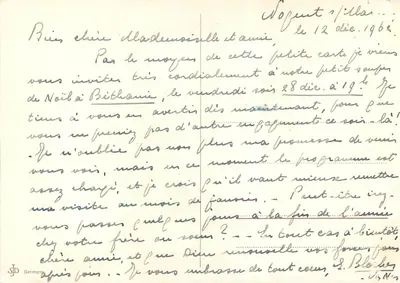 Nogent s/Mar...
le 12 déc. 196
Bien chère Mademoiselle et amie,
Par le moyen de cette petite carte je viens
vous inviter très cordialement à notre petit souper
de Noël à Béthanie, le vendredi soir 28 déc. à 19h. Je
tiens à vous en avertir dès maintenant, pour que
vous ne preniez pas d'autre engagement ce soir-là!
- Je n'oublie pas non plus ma promesse de venir
vous voir, mais en ce moment le programme est
assez chargé, et je crois qu'il vaut mieux remettre
ma visite au mois de janvier. - Peut-être irez-
vous passer quelques jours à la fin de l'année
chez votre frère ou sœur? - En tout cas à bientôt,
chère amie, et que Dieu renouvelle vos forces jour
après jour. - Je vous embrasse de tout cœur,
Germany